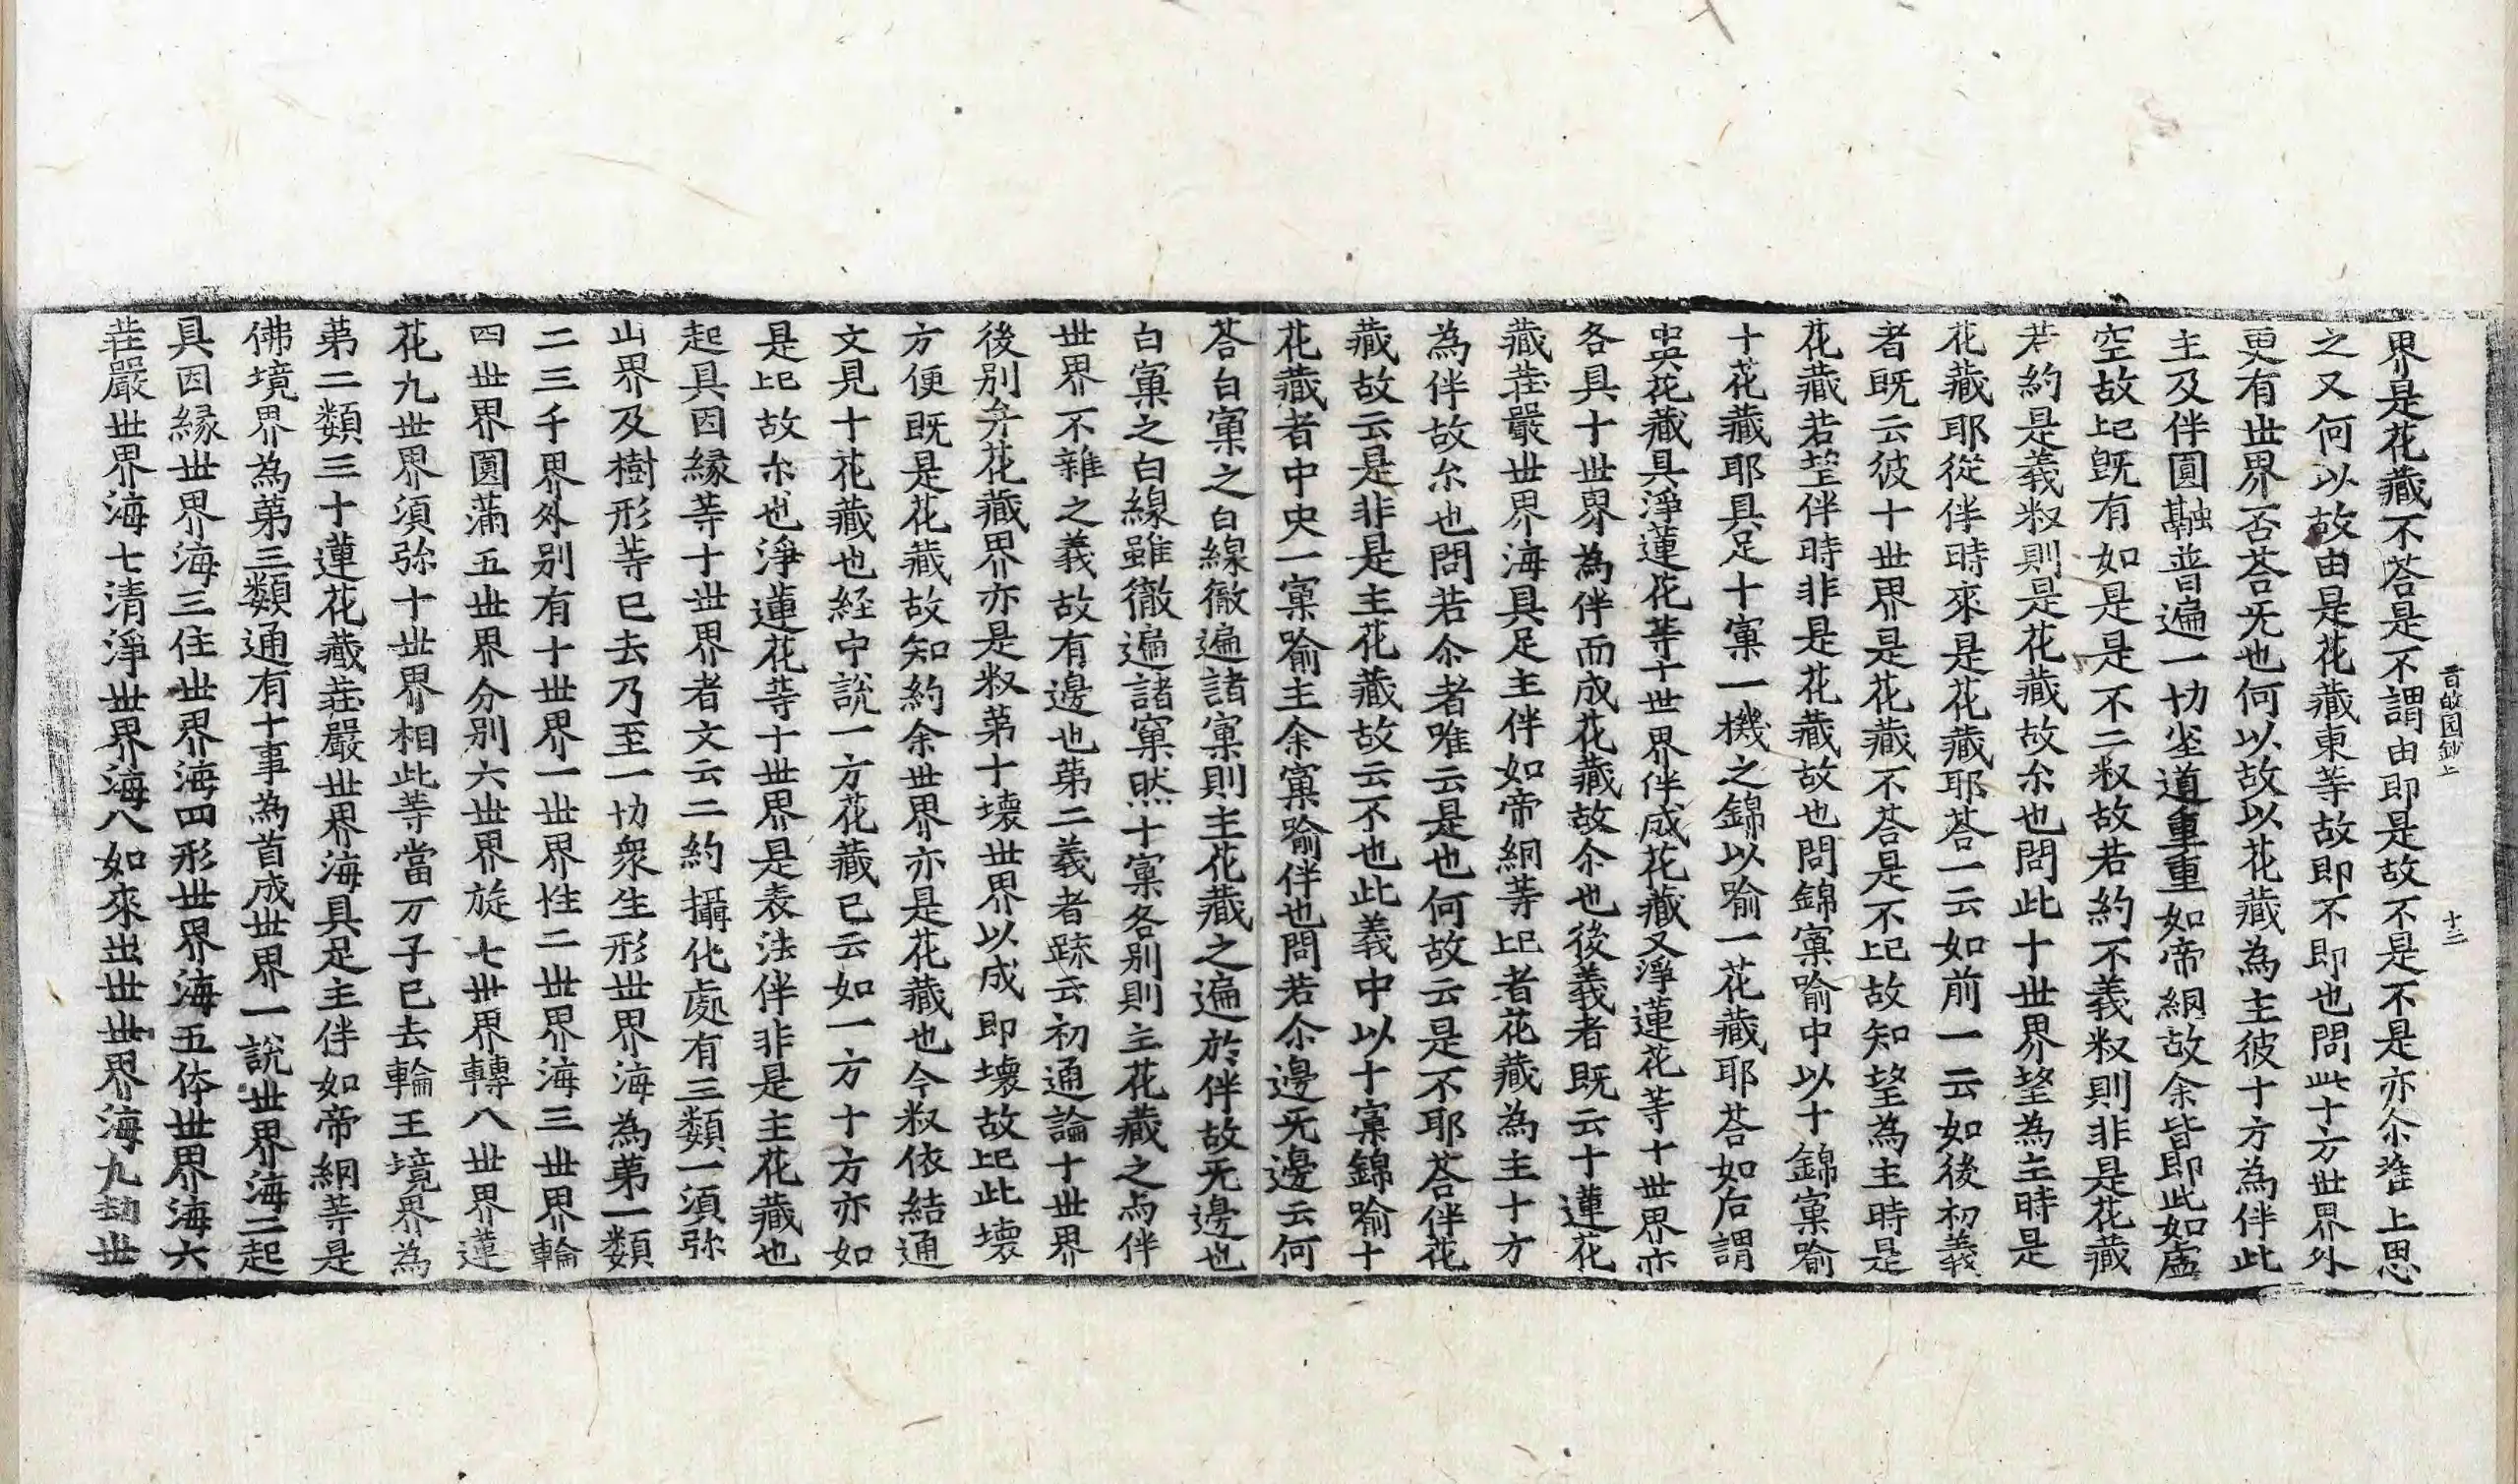 界是花藏不荅是不謂由即是故不是不是亦尒准上思
之又何以故由是花藏東等故即不即也問此十方世界外
更有世界否荅无也何以故以花藏為主彼十方為伴此
主及伴圓融普遍一切坐道重重如帝網故余皆即此如虛
空故上已既有如是是不二釈故若約不義釈則非是花藏
若約是義釈則是花藏故尒也問此十世界望為主時是
花藏耶從伴時來是花藏耶荅一云如前一云如後初義
者既云彼十世界是花藏不荅是不上已故知望為主時是
花藏若望伴時非是花藏故也問錦窠喻中以十錦窠喻
十花藏耶具足十窠一機之錦以喻一花藏耶荅如后謂
中央花藏具淨蓮花等十世界伴成花藏又淨蓮花等十世界亦
各具十世界為伴而成花藏故尒也後義者既云十蓮花
藏莊嚴世界海具足主伴如帝網等上已者花藏為主十方
為伴故尒也問若尒者唯云是也何故云是不耶荅伴花
藏故云是非是主花藏故云不也此義中以十窠錦喻十
花藏者中央一窠喻主余窠喻伴也問若尒邊无邊云何
荅白窠之白線徹遍諸窠則主花藏之遍於伴故无邊也
白窠之白線雖徹遍諸窠然十窠各別則主花藏之与伴
世界不雜之義故有邊也第二義者疏云初通論十世界
後別弁花藏界亦是釈第十壞世界以成即壞故上已此壞
方便既是花藏故知約余世界亦是花藏也今釈依結通
文見十花藏也経中說一方花藏已云如一方十方亦如
是上已故尒也淨蓮花等十世界是表法伴非是主花藏也
起具因緣等十世界者文云二約攝化處有三類一湏弥
山界及樹形等已去乃至一切衆生形世界海為第一類
二三千界外別有十世界一世界性二世界海三世界輪
四世界圓滿五世界分別六世界旋七世界轉八世界蓮
花九世界湏弥十世界相此等當万子已去輪王境界為
第二類三十蓮花藏莊嚴世界海具足主伴如帝網等是
佛境界為第三類通有十事為首成世界一說世界海二起
具因緣世界海三住世界海四形世界海五体世界海六
莊嚴世界海七清淨世界海八如來出世世界海九劫世